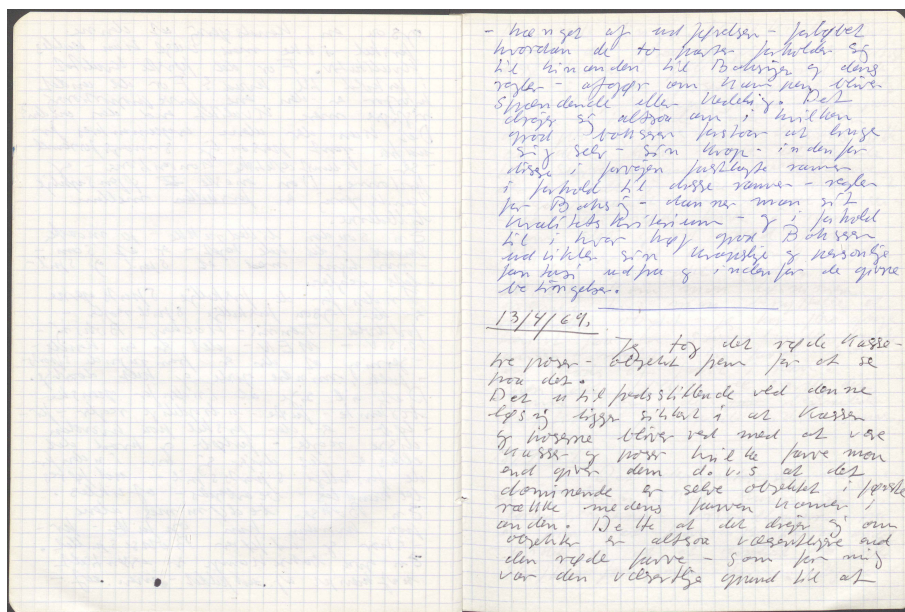 - hænger af udførelsen - forløbet
hvordan de to parter forholder sig
til hinanden til Boksning og dens
regler - afgør om kampen bliver
spændende eller kedelig. Det
drejer sig altsaa om i hvilken
grad bokseren forstaar at bruge
sig selv - sin krop - inden for
disse i forvejen fastlagte rammer
i forhold til disse rammer - regler
for Boksning - danner man sit
kvalitetskriterium - og i forhold
til i hvor høj grad Bokseren
udvikler sin kropslige og personlige
fantasi ud fra og inden for de givne
betingelser.
13/4/69.
Jeg tog det røde Kasse-
tre poser - objekt frem for at se
paa det.
Det utilfredsstillende ved denne
løsning ligger sikkert i at Kassen
og poserne bliver ved med at være
Kasser og poser hvilke farve man
end giver dem d.v.s at det
dominende er selve objektet i første
række medens farven kommer i
anden. Dette at det drejer sig om
objekter er altsaa væsentligere end
den røde farve - som for mig
var den væsentlige grund til at